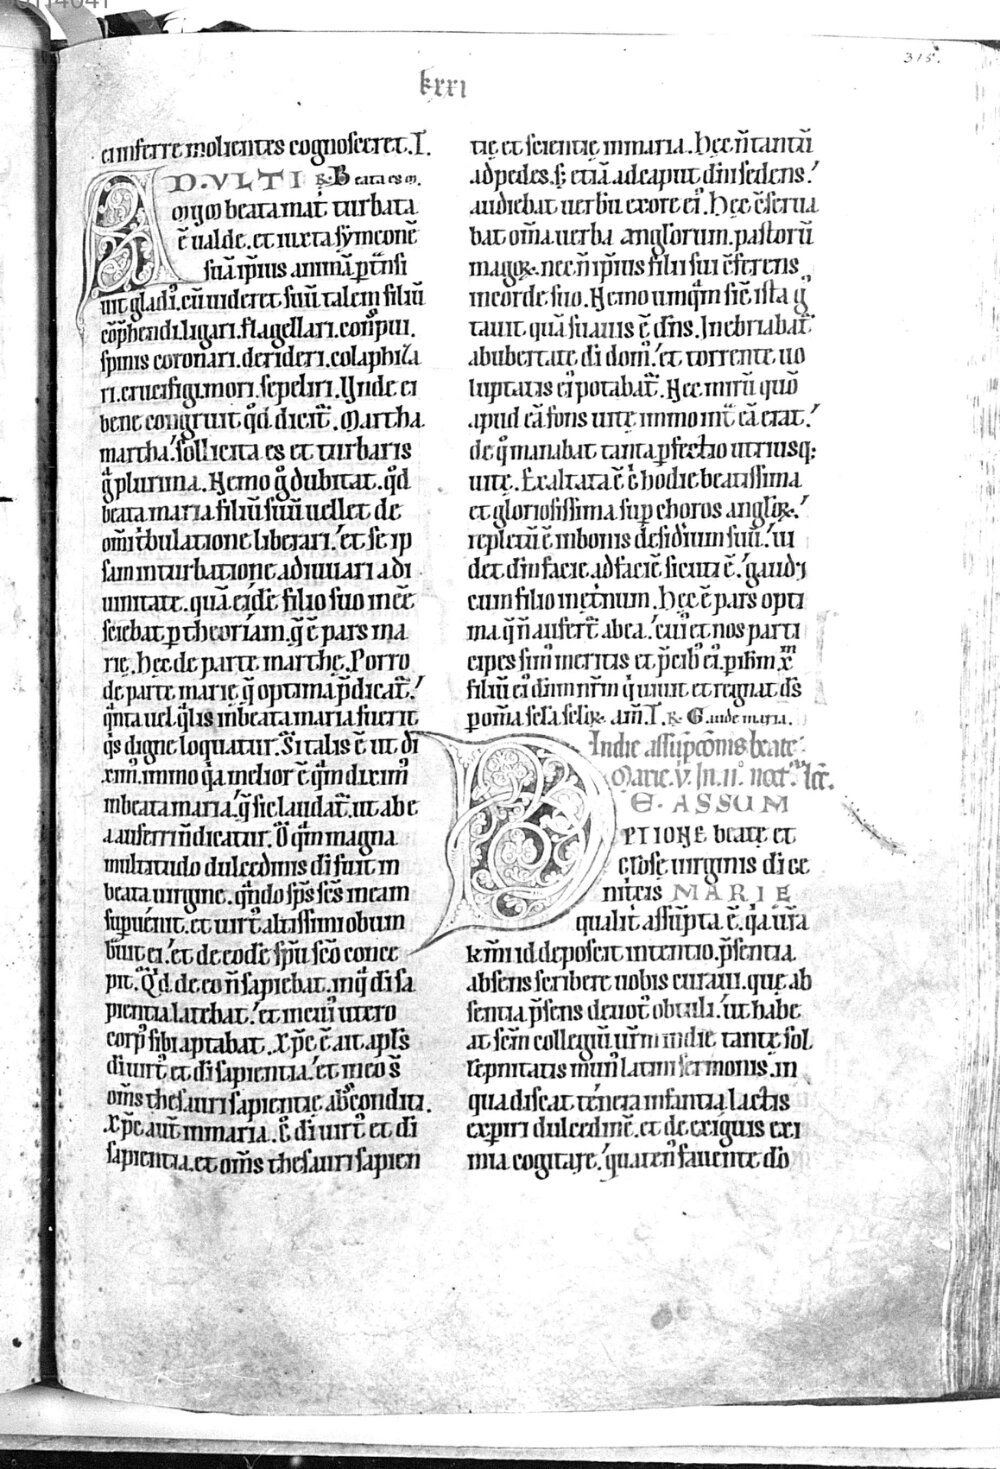 315.
kxxi
eam ferre molientes cognosceret. T.
AD. VLTI R. Beata es m.
mg̃ beata mat̃ turbata
ẽ ualde. et iuxta symeonẽ
suã ipsius animã ꝑtrãsi
uit gladiꝰ. cũ uideret suũ talem filiũ
cõp̃hendi. ligari. flagellari. conspui.
spinis coronari. derideri. colaphiza
ri. crucifigi. mori. sepeliri. Vnde ei
bene congruit q̃d dicit̃. Martha
martha. sollicita es et turbaris
plurima. Nemo g̊ dubitat. q̃d
beata maria filiũ suũ uellet de
om̃i tbulatione liberari. et se ip
sam in turbatione adiuuari a di
uinitate. quã eidẽ filio suo inẽẽ
sciebat ꝑ theoriam. q̃ ẽ pars ma
rię. hec de parte marthę. Porro
de parte marię q̃ optima p̃dicat̃.
q̃nta uel q̃lis in beata maria fuerit
q̃s digne loquatur. Si talis ẽ ut di
ximꝰ. immo q̃a melior ẽ q̃m diximꝰ
in beata maria. q̃ sic laudat̃. ut ab e
a auferri ñ dicatur. O q̃m magna
multitudo dulcedinis di fuit in
beata uirgine. q̃ndo sp̃s sc̃s in eam
supuenit. et uirtꝰ altissimi obum
brauit ei. et de eodẽ sp̃u sc̃o conce
pit. Q̃d de eo ñ sapiebat. in q̃ di sa
pientia latebat. et in cuiꝰ utero
corpꝰ sibi aptabat. xp̃c ẽ ait apl̃s
di uirtꝰ et di sapientia. et in eo s̃
om̃s thesauri sapientie absconditi.
Xp̃c aut̃ in maria. ẽ di uirtꝰ et di
sapientia. et om̃s thesauri sapien
tię et scientię in maria. Hec ñ tantũ
ad pedes. s; etiã ad caput dñi sedens.
audiebat uerbũ ex ore eiꝰ. Hec cserua
bat om̃a uerba anglorum. pastorũ
magoꝝ. nec ñ ipsius filii sui cferens
in corde suo. Nemo umq̃m sic ista g
tauit quã suauis ẽ dñs. Inebriabat̃
ab ubertate di domꝰ. et torrente uo
luptatis eiꝰ potabat̃. Nec mirũ quõ
apud eã fons uitę immo int̃ eã erat.
de q̊ manabat tanta ꝑfectio utriusq;
uitę. Exaltata ẽ ẽ hodie beatissima
et gloriosissima sup choros anglꝝ.
repletũ ẽ in bonis desidium suũ. ui
det dñm facie ad faciẽ sicuti ẽ. gaudꝫ
cum filio in etnum. Hec ẽ pars opti
ma. q̃ ñ aufert̃ ab ea. cuiꝰ et nos parti
cipes simꝰ meritis et p̃cibꝰ eiꝰ. ꝑ ihm xp̃m
filiũ eiꝰ dñm nr̃m q̃ uiuit et regnat ds̃
ꝑ om̃a sc̃la scłoꝝ. am̃. T. R. Gaude maria.
In die assũpcõnis beate
Marie. v. In. iiº. noct. lcc̃.
DE. ASSUM
PTIONE beatę et
glose uirginis di ge
nitcis MARIE
qualit̃ assũpta. ẽ. q̃a ur̃a
km̃i id deposcit intentio. p̃sentia
absens scribere uobis curaui. quę ab
sentia p̃sens deuotꝰ obtuli. ut habe
at sc̃m collegiũ ur̃m in die tantę sol
lepnitatis munꝰ latini sermonis. in
qua discat tenera infantia lactis
exꝑiri dulcedinẽ. et de exiguis exi
mia cogitare. quatenꝰ fauente dõ